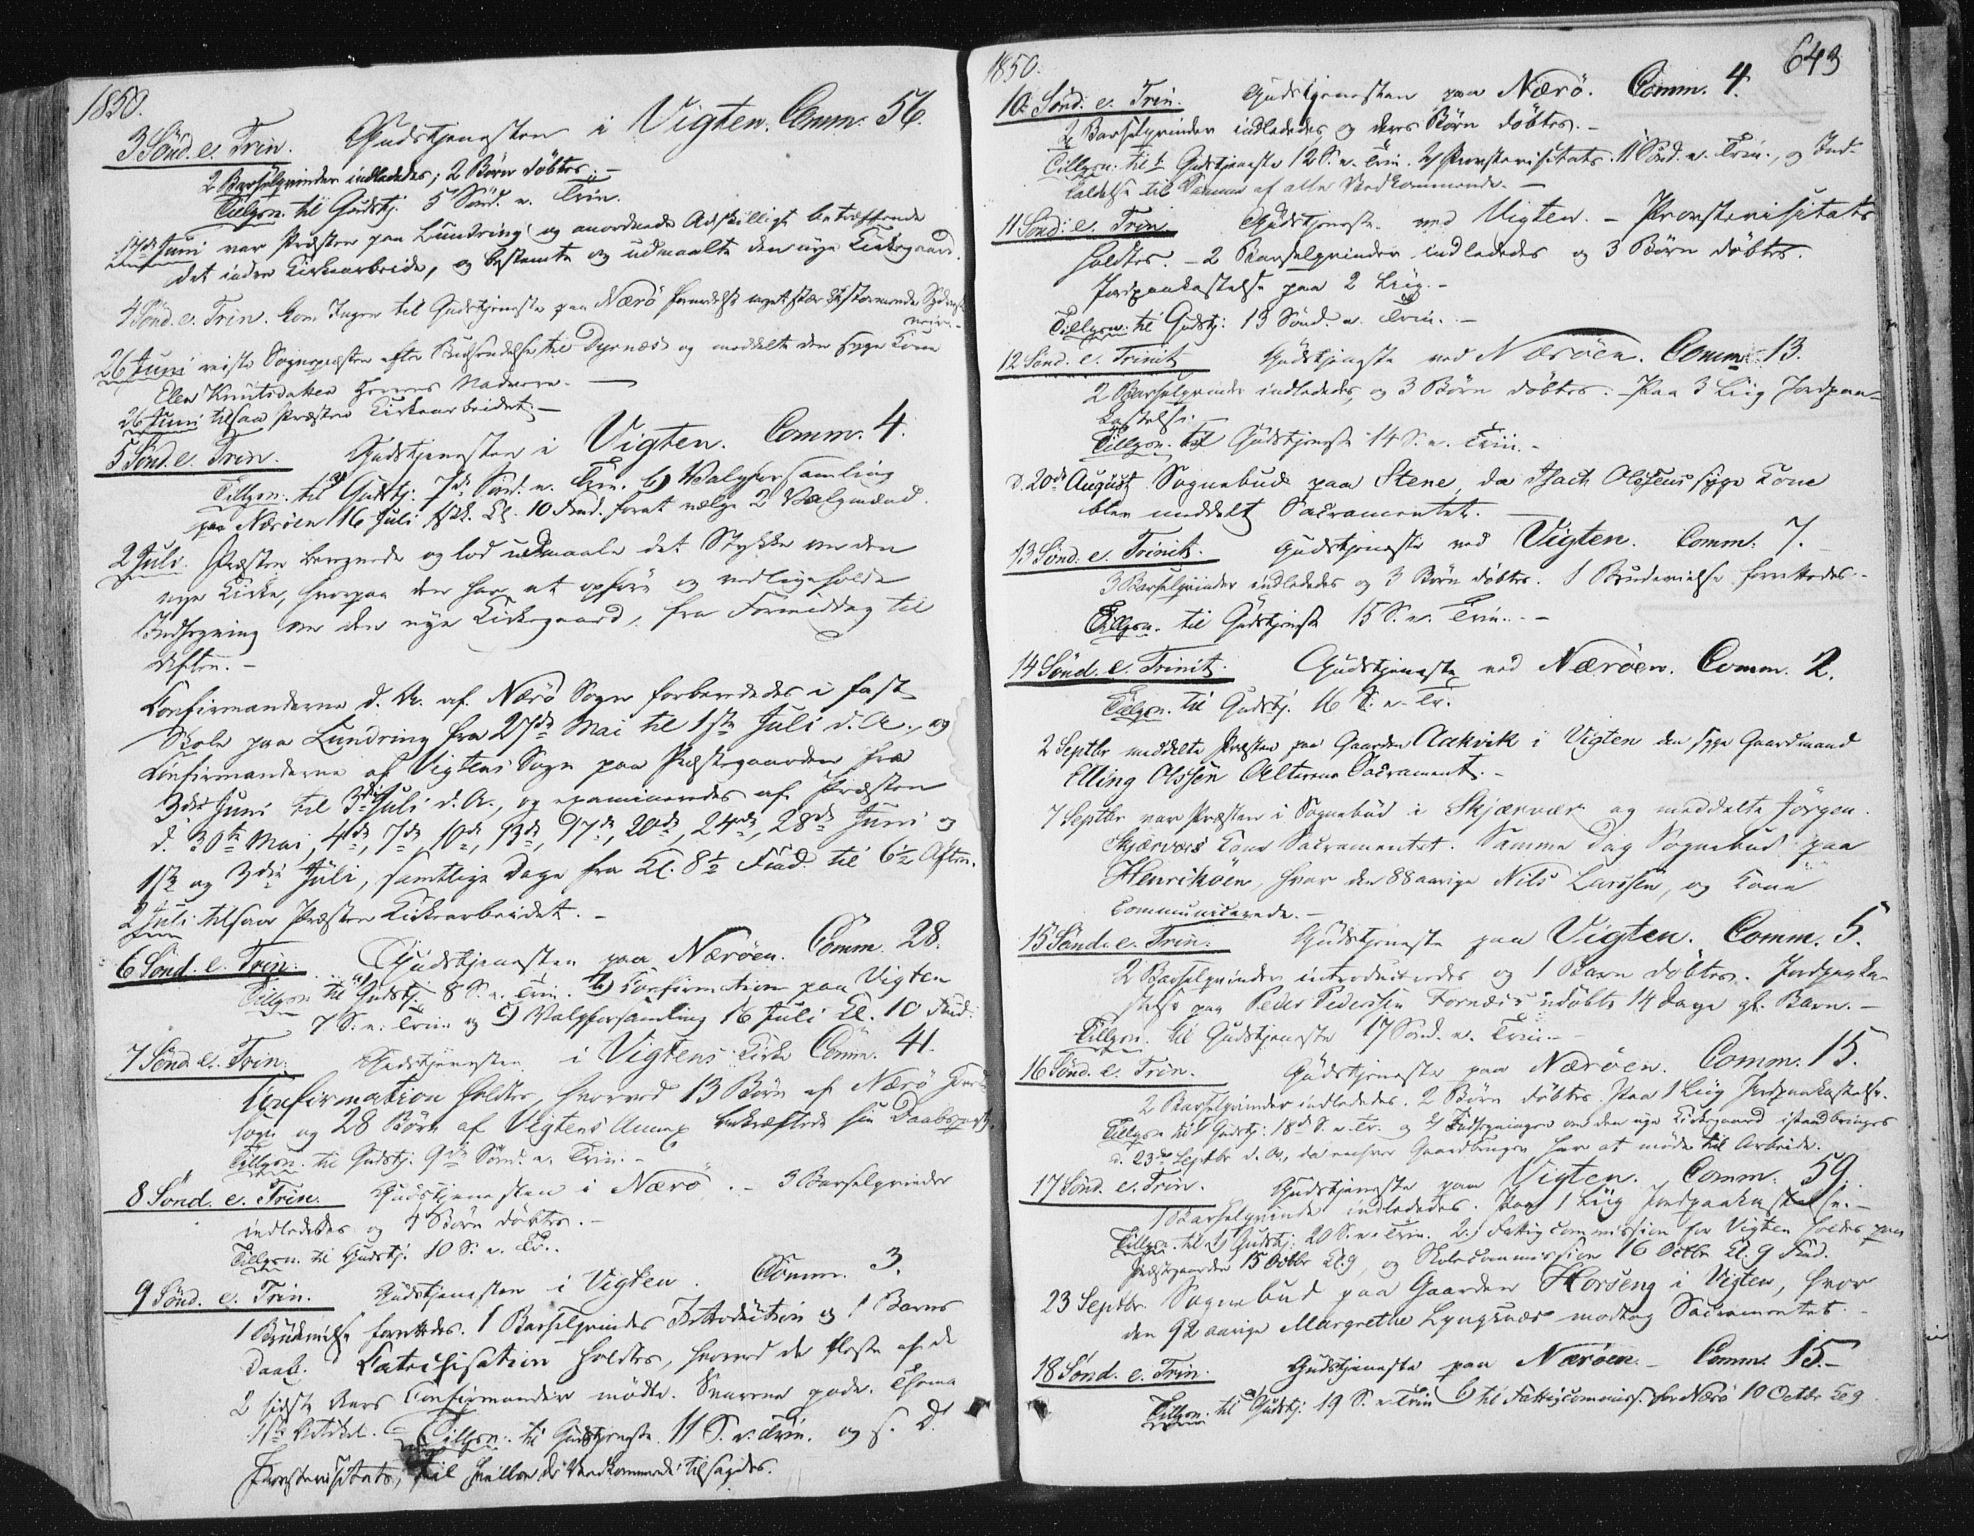 1850.
3 Sönd. e. Trin. Gudstjenesten i Vigten. Comm. 56.
2 Barselqvinder indledede; 2 Børn döbtes. –
Tillysn. til Gudstj. 5 Sönd. e. Trin.
17de Juni var Præsten paa Lundring og anordnede Adskilligt betræffende
det indre Kirkearbeide, og bestemte og udmaalte den nye Kirkegaard.
4 Sönd. e. Trin. kom Ingen til Gudstjeneste paa Nærö formedelst stormende
26 Juni reiste Sognepræsten efter Budsendelse til Dyrnæs og meddelte den syge Kone
Ellen Knutsdatter Herrens Nadvere. –
26 Juni tilsaa Præsten Kirkearbeidet. –
5 Sönd. e. Trin. Gudstjenesten i Vigten. Comm. 4.
Tillysn. til a) Gudstj. 7de Sönd. e. Trin. b) Valgforsamling
paa Næröen 16 Juli Kl. 10 Fmd. for at vælge 2 Valgmænd.
2 Juli. Præsten beregnede og lod udmaale det Stykke om den
nye Kirke, hvorpaa der har at opföre og vedligeholde
Indhegning om den nye Kirkegaard, fra Formiddag til
Aften. –
Confirmanderne d. A. af Nærö Sogn forberededes i fast
Skole paa Lundring fra 27de Mai til 1ste Juli d. A., og
Confirmanderne af Vigtens Sogn paa Præstegaarden fra
3die Juni til 3die Juli d. A., og examineredes af Præsten
d. 30te Mai, 4de, 7de, 10de, 13de, 17de, 20de, 24de, 28de Juni og
1ste og 3die Juli, samtlige Dage fra Kl. 8½ Fmd. til 6½ Aften.
2 Juli tilsaa Præsten Kirkearbeidet. –
6 Sönd. e. Trin. Gudstjenesten paa Næröen. Comm. 28.
Tillysn. til a) Gudstj. 8 S. e. Trin. b) Confirmation paa Vigten
7 S. e. Trin. og c) Valgforsamling 16 Juli Kl. 10 Fmd.
7 Sönd. e. Trin. Gudstjenesten i Vigtens Kirke Comm. 41.
Confirmation holdtes, hvorved 13 Börn af Nærö
sogn og 28 Börn af Vigtens Annex bekræftede sin Daabspagt.
Tillysn. til Gudstj. 9de Sönd. e. Trin. –
8 Sönd. e. Trin. Gudstjenesten i Nærö. – 3 Barselqvinder
indlededes og 4 Börn döbtes. –
Tillysn. til Gudstj. 10 S. e. Tr.
9 Sönd. e. Trin. Gudstjenesten i Vigten. Comm. 3.
1 Brudevielse forrettedes. 1 Barselqvindes Introduction og 1 Barns
Daab. Catechisation holdtes, hvorved de fleste af de
2 sidste Aars Confirmander mödte. Svarene gode. Thema
1ste Artikel. – Tillysn. til Gudstjeneste 11 S. e. Trin. og s. D.
Provstevisitats, til hvilken de Vedkommende tilsagdes.
1850. 643
10 Sönd. e. Trin. Gudstjenesten paa Nærö. Comm. 4.
2 Barselqvinder indlededes og deres Börn döbtes. –
Tillysn. til 1) Gudstjeneste 12 S. e. Trin. 2) Provstevisitats 11 Sönd. e. Trin., og Ind-
kaldelse til Samme af alle Vedkommende. –
11 Sönd. e. Trin. Gudstjeneste ved Vigten. – Provstevisitats
holdtes. – 2 Barselqvinder indlededes og 3 Börn döbtes.
Jordpaakastelse paa 2 Liig. –
Tillysn. til Gudstj. 13 Sönd. e. Trin. –
12 Sönd. e. Trinit. Gudstjeneste ved Nærøen. Comm. 13.
2 Barselqvinder indlededes, og 3 Börn döbtes. Paa 3 Liig Jordpaa-
kastelse.
Tillysn. til Gudstjeneste 14 S. e. Trin. –
d. 20de August Sognebud paa Stene, da Isach Olssens syge Kone
blev meddelt Sacramentet. –
13 Sönd. e. Trinit. Gudstjeneste ved Vigten. Comm. 7.
3 Barselqvinder indlededes og 3 Börn döbtes. 1 Brudevielse forrettedes. –
Tillysn. til Gudstjeneste 15 S. e. Trin. –
14 Sönd. e. Trinit. Gudstjeneste ved Nærøen. Comm. 2.
Tillysn. til Gudstj. 16 S. e. Tr.
2 Septbr meddelte Præsten paa Gaarden Aakvik i Vigten den syge Gaardmand
Elling Olssen Alterens Sacrament. –
7 Septbr var Præsten i Sognebud i Skjærvær og meddelte Jörgen
Skjærværs Kone Sacramentet. Samme Dag Sognebud paa
Henriksöen, hvor den 88 aarige Nils Larssen, og Kone
communicerede. –
15 Sönd. e. Trin. Gudstjeneste paa Vigten. Comm. 5.
2 Barselqvinder introduceredes og 1 Barn döbtes. Jordpaaka-
stelse paa Peder Pedersen Fornæs's udöbte 14 Dage gl. Barn. –
Tillysn. til Gudstjeneste 17 Sönd. e. Trin. –
16 Sönd. e. Trin. Gudstjeneste paa Nærøen. Comm. 15.
2 Barselqvinder indlededes. 2 Börn döbtes. Paa 1 Liig Jordpaakastelse.
Tillysn. til 1) Gudstj. 18de S. e. Tr. og 2) Indhegningen om den nye Kirkegaard istandbringes
d. 23de Septbr d. A., da enhver Gaardbruger har at möde til Arbeide.
17 Sönd. e. Trin. Gudstjeneste paa Vigten. Comm. 59.
1 Barselqvinde indlededes. Paa 1 Liig Jordpaakastelse. –
Tillysn. til 1) Gudstj. 20 S. e. Trin. 2) Fattigcommission for Vigten holdes paa
Præstegaarden 15 Octbr Kl. 9, og Skolecommission 16 Octbr Kl. 9 Fmd.
23 Septbr. Sognebud paa Gaarden Horseng i Vigten, hvor
den 92 aarige Margrethe Lyngsnæs modtog Sacramentet. –
18 Sönd. e. Trin. Gudstjeneste paa Nærøen. – Comm. 15. –
Tillysn. til a) Gudstj. 19 S. e. Trin b) til Fattigcommiss. for Nærö 10 Octbr Kl 9